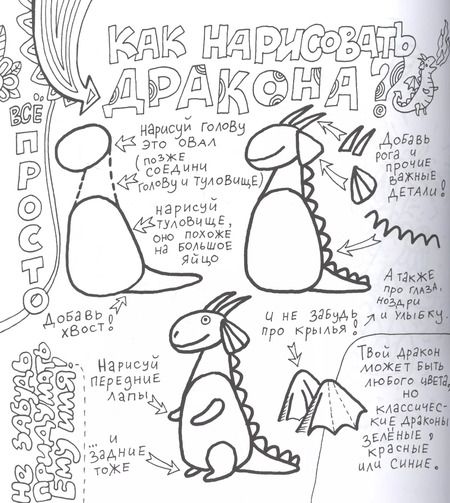 КАК НАРИСОВАТЬ
ДРАКОНА?
ВСЁ
ПРОСТО
НАРИСУЙ ГОЛОВУ
ЭТО ОВАЛ
(ПОЗЖЕ
СОЕДИНИ
ГОЛОВУ И ТУЛОВИЩЕ)
НАРИСУЙ
ТУЛОВИЩЕ,
ОНО ПОХОЖЕ
НА БОЛЬШОЕ
ЯЙЦО
ДОБАВЬ
ХВОСТ!
ДОБАВЬ
РОГА И
ПРОЧИЕ
ВАЖНЫЕ
ДЕТАЛИ!
А ТАКЖЕ
ПРО ГЛАЗА,
НОЗДРИ
И УЛЫБКУ.
И НЕ ЗАБУДЬ
ПРО КРЫЛЬЯ!
НАРИСУЙ
ПЕРЕДНИЕ
ЛАПЫ
...И
ЗАДНИЕ
ТОЖЕ
ТВОЙ ДРАКОН
МОЖЕТ БЫТЬ
ЛЮБОГО ЦВЕТА,
НО
КЛАССИЧЕС-
КИЕ ДРАКОНЫ
ЗЕЛЁНЫЕ,
КРАСНЫЕ
ИЛИ СИНИЕ.
НЕ ЗАБУДЬ
ПРИДУМАТЬ
ЕМУ ИМЯ!